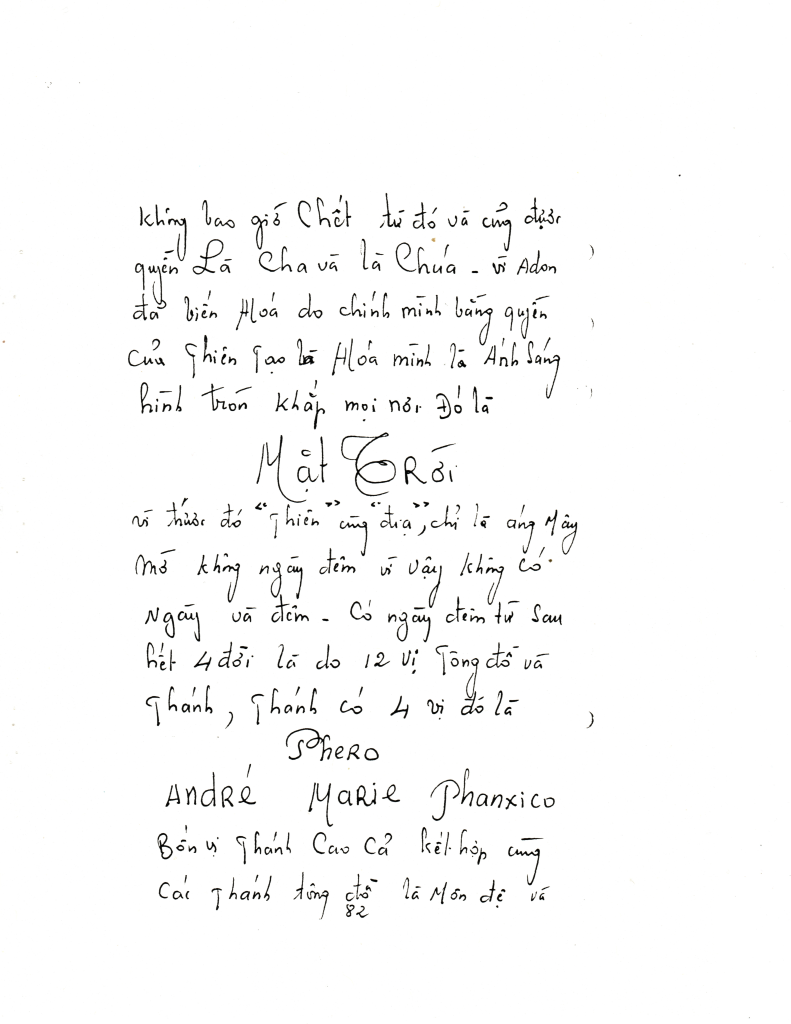 không bao giờ Chết từ đó và cũng được
quyền Là Cha và là Chúa - vì Adon
đã biến Hoá do chính mình bằng quyền
của Thiên Tạo Hoá mình là Ánh Sáng
hình tròn khắp mọi nơi Đó là
Mặt Trời
vì thước đó "Thiên" cùng "địa", chỉ là áng Mây
mờ không ngày đêm vì vậy không có
Ngày và đêm - Có ngày đêm từ sau
hết 4 đời là do 12 vị Tông đồ và
Thánh, Thánh có 4 vị đó là
Phero
André Marie Phanxico
Bốn vị Thánh Cao Cả kết hợp cùng
Các Thánh tông đồ là Môn đệ và
82